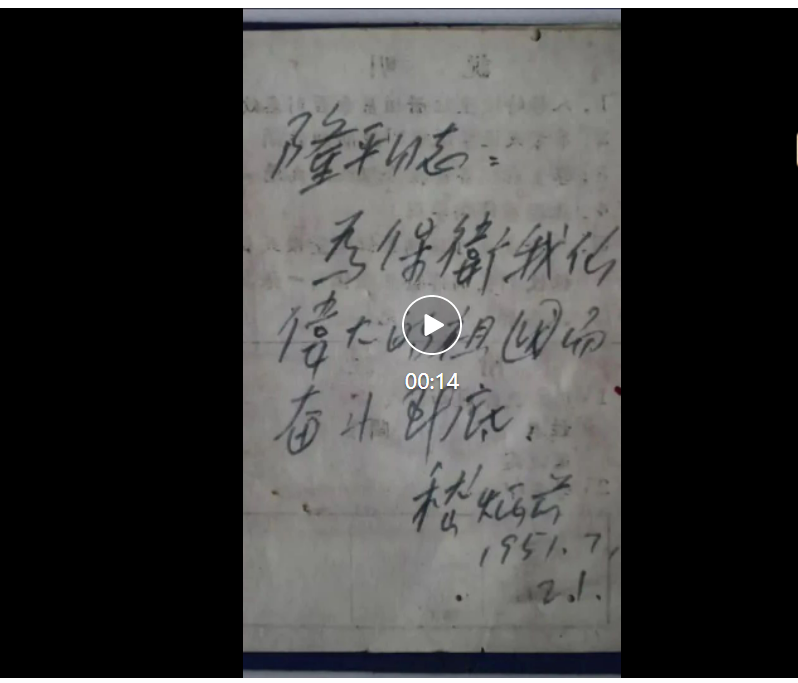 隆平同志：
為保衛我们
偉大的祖国而
奋斗到底。
1951.7.
21.
00:14